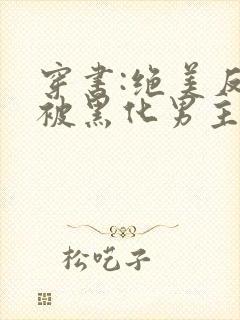 穿书:绝美反
被黑化男主
松吃子